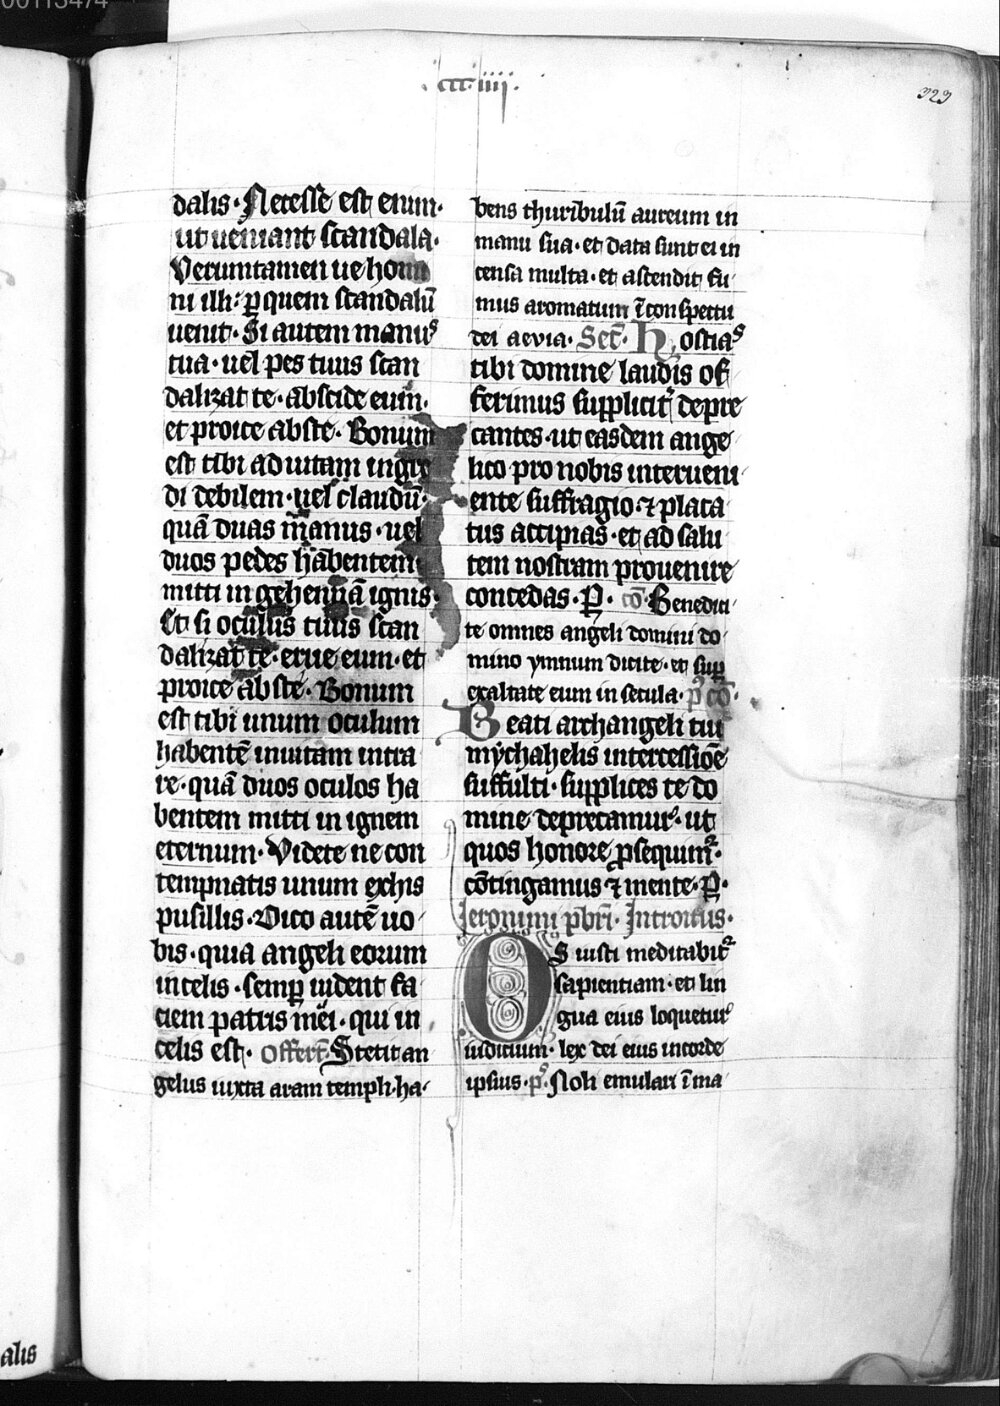 00113474
ccc·iiij·
323
dalis· Necesse est enim·
ut veniant scandala·
Verumtamen ve homi
ni illi· ꝑ quem scandalū
venit· Si autem manus
tua· vel pes tuus scan
dalizat te· abscide eum·
et proice abs te· Bonum
est tibi ad vitam ingre
di debilem· vel claudū·
quā duas manus· vel
duos pedes habentem
mitti in gehennā ignis·
Et si oculus tuus scan
dalizat te· erue eum· et
proice abs te· Bonum
est tibi unum oculum
habentē in vitam intra
re· quā duos oculos ha
bentem mitti in ignem
eternum· Videte ne con
tempnatis unum ex his
pusillis· Dico autē vo
bis· quia angeli eorum
in celis· semꝑ vident fa
ciem patris mei· qui in
celis est· Offert̄· Stetit an
gelus iuxta aram templi· ha
bens thuribulū aureum in
manu sua· et data sunt ei in
censa multa· et ascendit fu
mus aromatum ī conspectu
dei aevia· Secr̄· Hostias
tibi domine laudis of
ferimus suppliciť depre
cantes· ut easdem ange
lico pro nobis interveni
ente suffragio· ⁊ placa
tus accipias· et ad salu
tem nostram provenire
concedas· P· cō· Benedici
te omnes angeli domini do
mino ymnum dicite· et suꝑ
exaltate eum in secula· p̄ cō·
Beati archangeli tui
mychahelis intercessiōe
suffulti· supplices te do
mine deprecamur· ut
quos honore ꝓsequimur·
cōtingamus ⁊ mente· P·
Ieronimi pbr̄i· Introitus·
OS iusti meditabitur
sapientiam· et lin
gua eius loquetur
iudicium· lex dei eius in corde
ipsius· ps· Noli emulari ī ma
alis